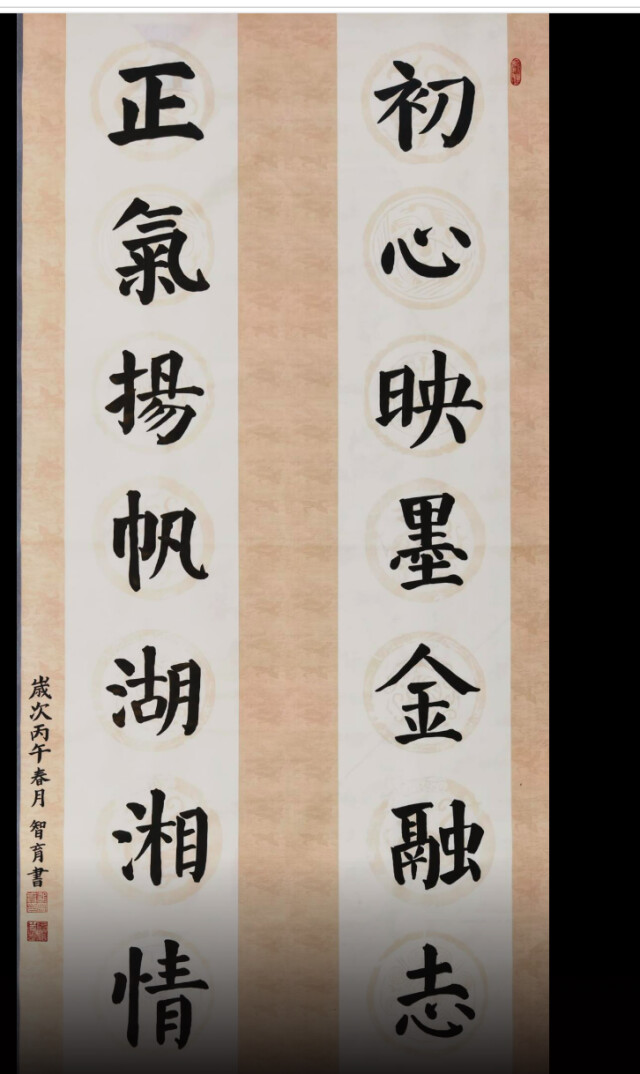 初心映墨金融志
正氣揚帆湖湘情
歲次丙午春月 智育書